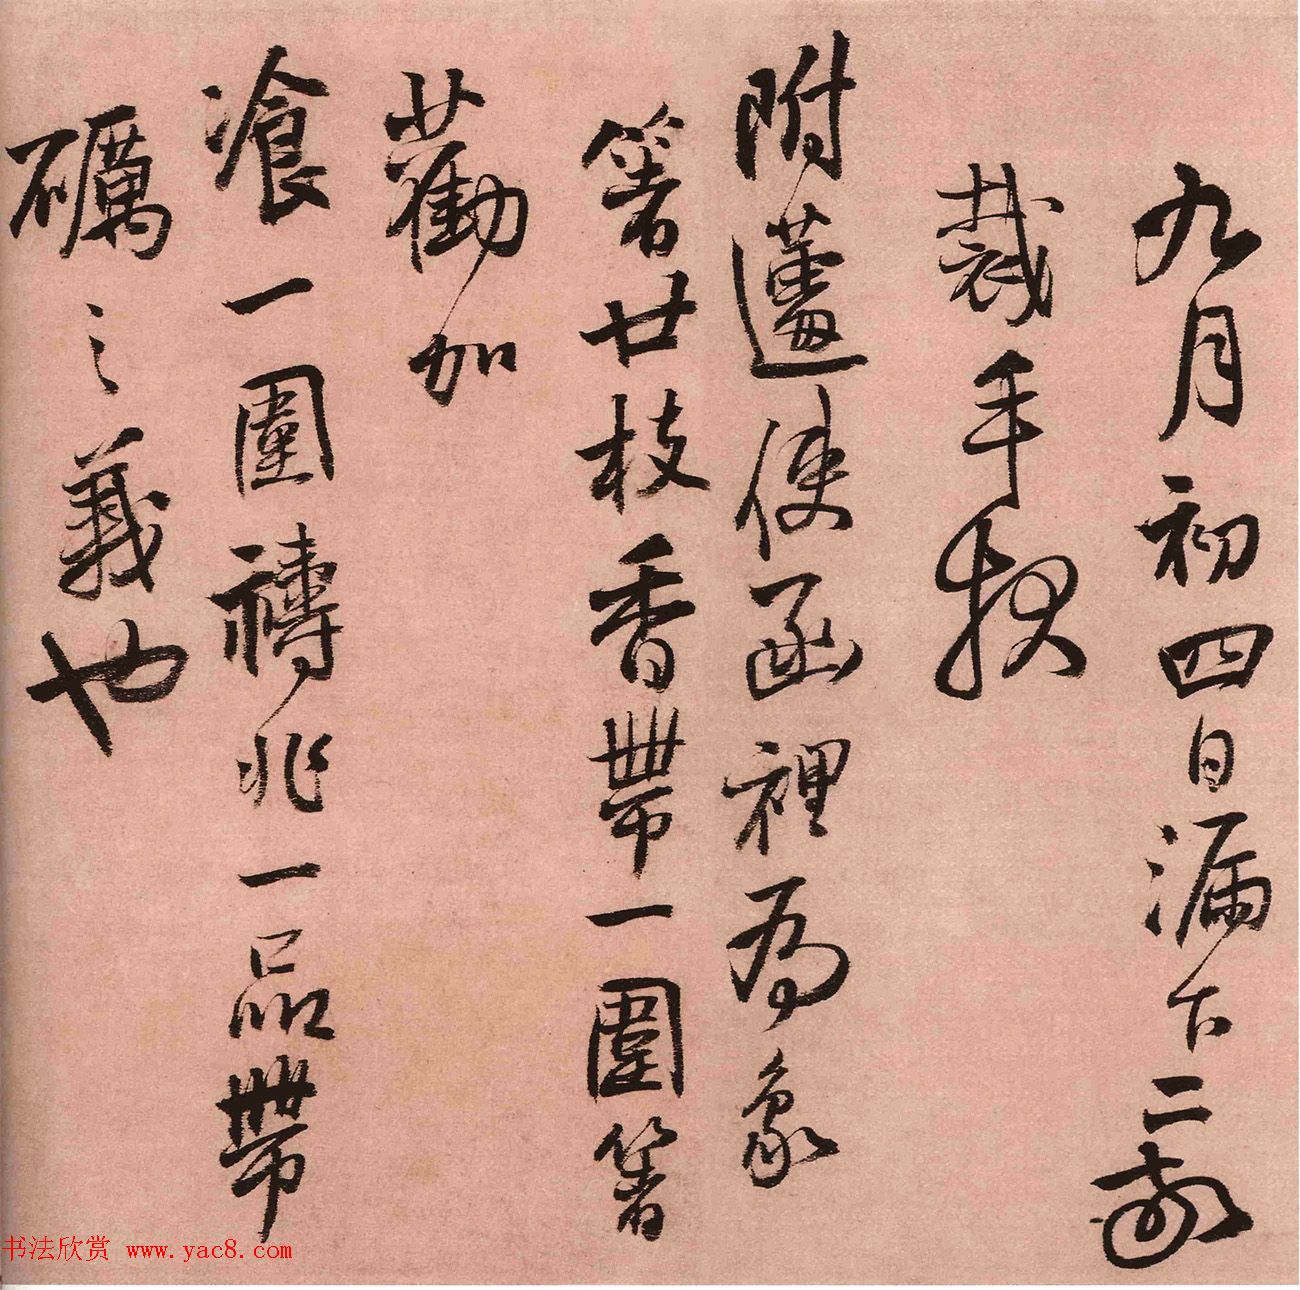 九月初四日漏下二刻
裁手㸌
附蘧使函裡為象
箸廿枝香帶一圍箸
勸加
飡一圍禱兆一品帶
礪之義也
书法欣赏 www.yac8.com